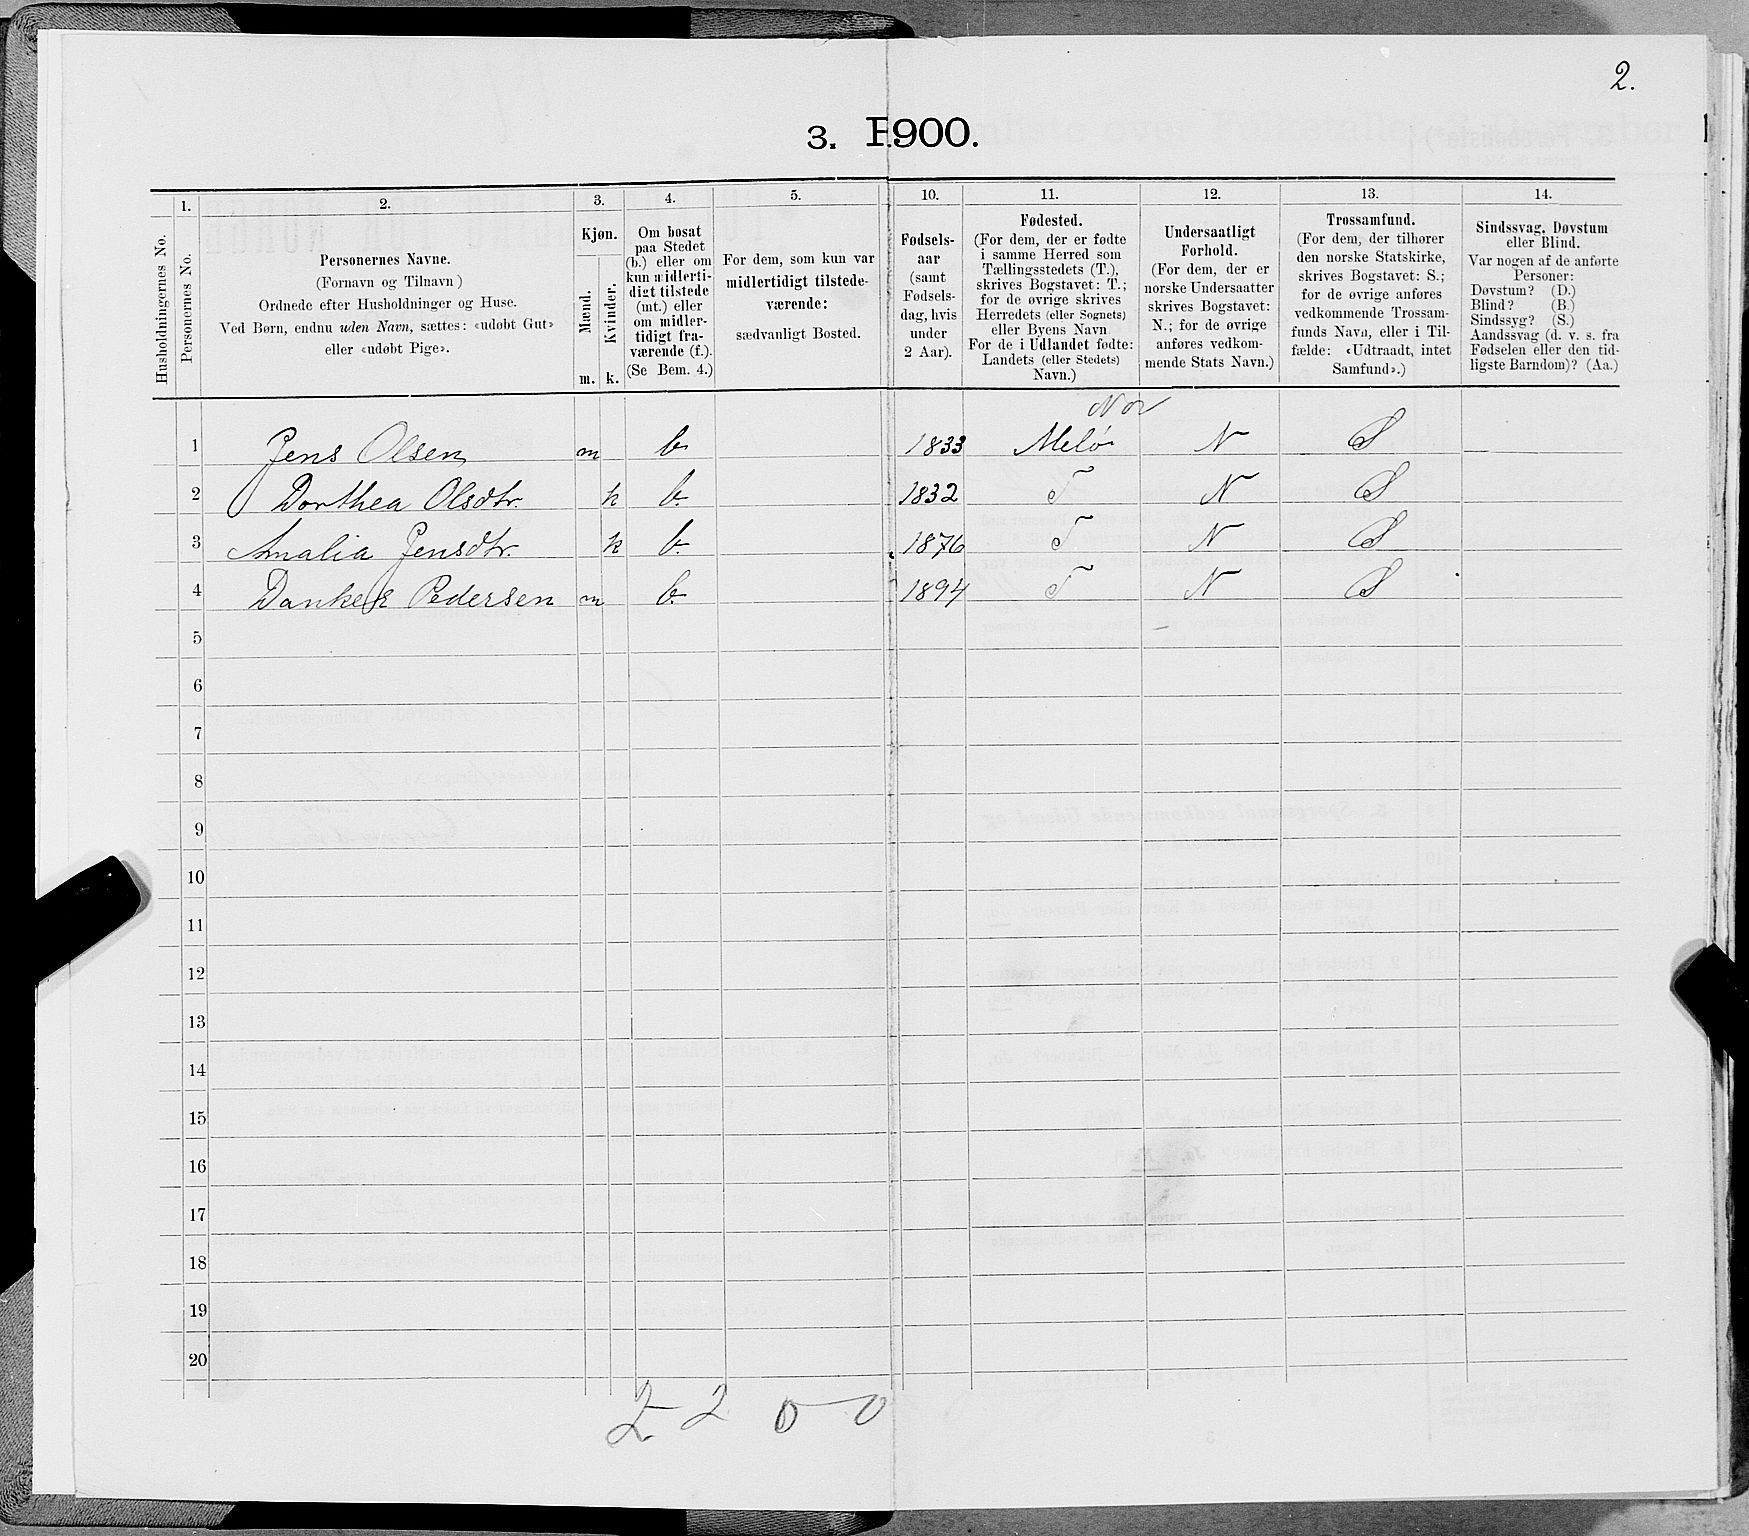 2.
3. 1900.
1.
2.
3.
4.
5.
10.
11.
12.
13.
14.
Husholdningernes No.
Personernes No.
Personernes Navne.
(Fornavn og Tilnavn)
Ordnede efter Husholdninger og Huse.
Ved Børn, endnu uden Navn, sættes: «udøbt Gut»
eller «udøbt Pige».
Kjøn.
Mænd.
Kvinder.
m.
k.
Om bosat
paa Stedet
(b.) eller om
kun midlerti-
digt tilstede
(mt.) eller
om midler-
tidigt fra-
værende (f.).
(Se Bem. 4.)
For dem, som kun var
midlertidigt tilstede-
værende:
sædvanligt Bosted.
Fødsels-
aar
(samt
Fødsels-
dag, hvis
under
2 Aar).
Fødested.
(For dem, der er fødte
i samme Herred som
Tællingsstedets (T.),
skrives Bogstavet: T.;
for de øvrige skrives
Herredets (eller Sognets)
eller Byens Navn
For de i Udlandet fødte:
Landets (eller Stedets)
Navn.)
Undersaatligt
Forhold.
(For dem, der er
norske Undersaatter
skrives Bogstavet:
N.; for de øvrige
anføres vedkom-
mende Stats Navn.)
Trossamfund.
(For dem, der tilhører
den norske Statskirke,
skrives Bogstavet: S.;
for de øvrige anføres
vedkommende Trossam-
funds Navn, eller i Til-
fælde: «Udtraadt, intet
Samfund».)
Sindssvag, Døvstum
eller Blind.
Var nogen af de anførte
Personer:
Døvstum? (D.)
Blind? (B.)
Sindssyg? (S.)
Aandssvag (d. v. s. fra
Fødselen eller den tid-
ligste Barndom)? (Aa.)
Nor
1 Jens Olsen m b 1833 Melø N S
2 Dorthea Olsdtr. k b. 1832 T N S
3 Amalia Jensdtr. k b. 1876 T N S
4 Danker Pedersen m b. 1894 T N S
5
6
7
8
9
10
11
12
13
14
15
16
17
18
19
20
2 2 0 0